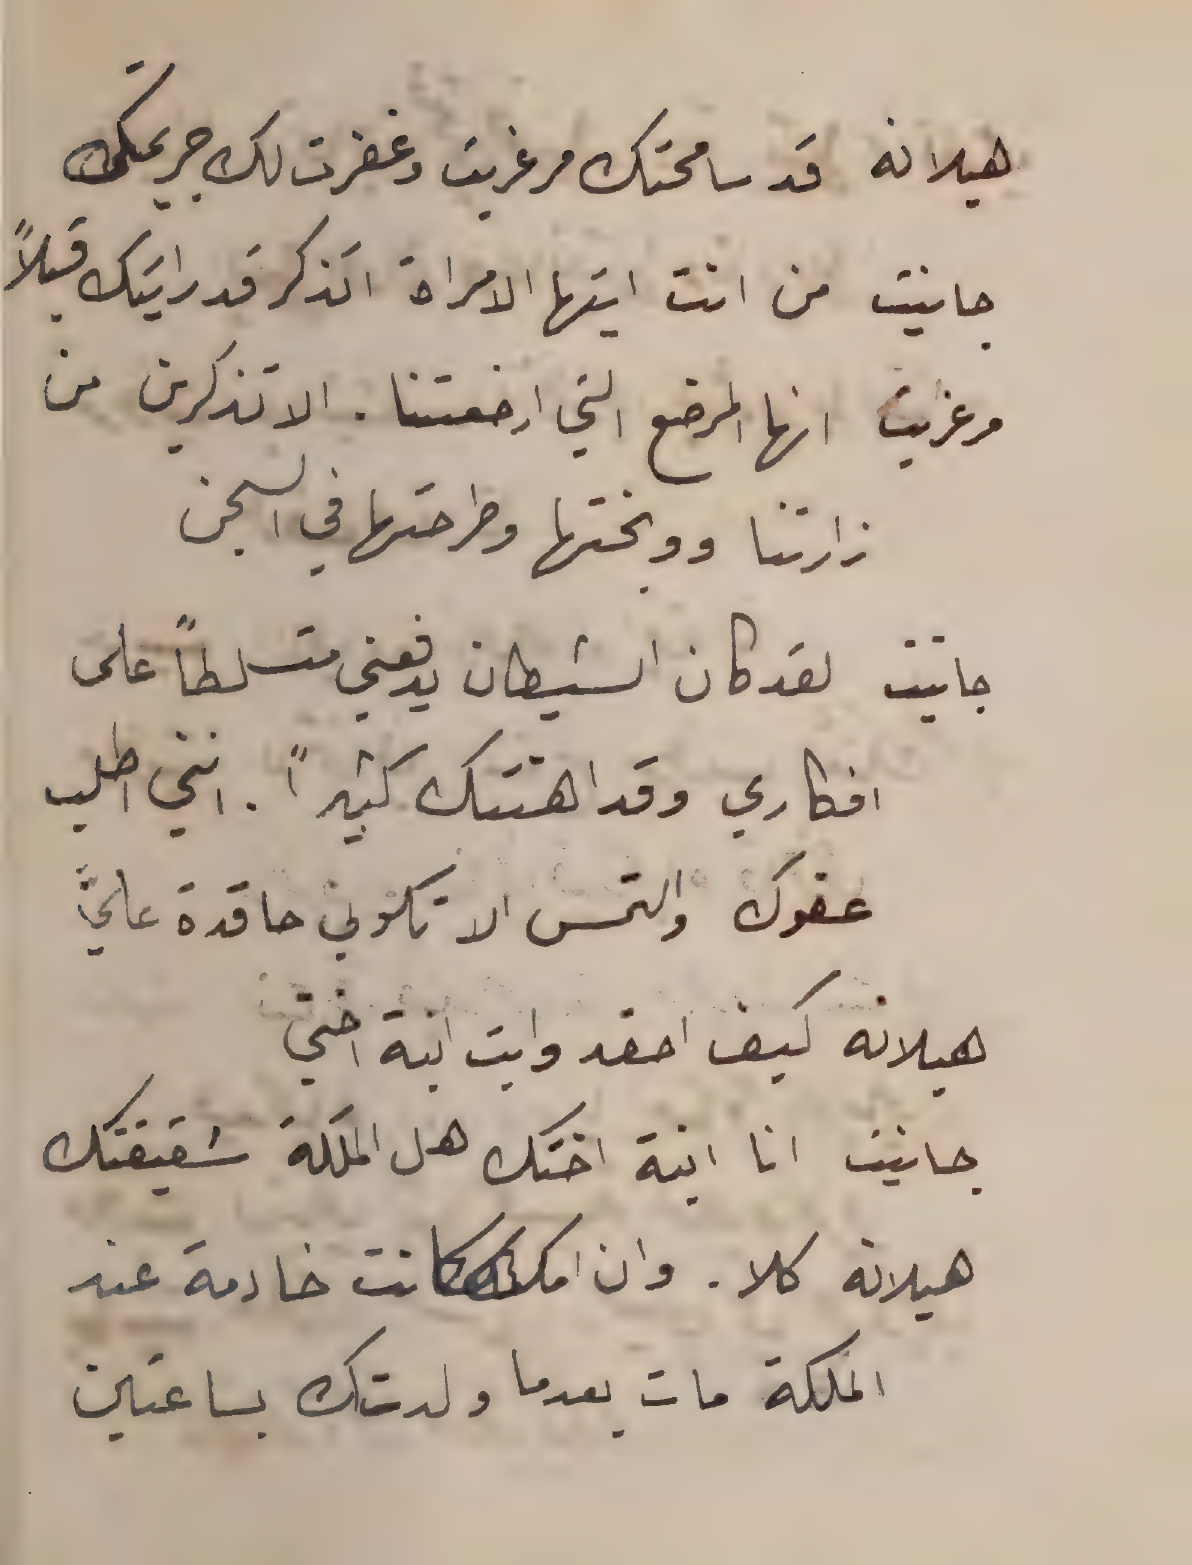 هيلانه قد سامحتك مرغريت وغفرت لك جريمتك
جانيت من انت ايتها الامراة اتذكر قد رايتك قبلاً
مرغريت انها المرضع التي ارضعتنا. الا تذكرين من
زارتنا ووبختها وطرحتها في السجن
جانيت لقد كان الشيطان يدفعني متسلطاً على
افكاري وقد اهنتك كثيراً. انني اطلب
عفوك والتمس الا تكوني حاقدة عليَّ
هيلانه كيف احقد وانت ابنة اختي
جانيت انا ابنة اختك هل الملكة شقيقتك
هيلانه كلا. وان امك كانت خادمة عند
الملكة مات بعدما ولدتك بساعتين